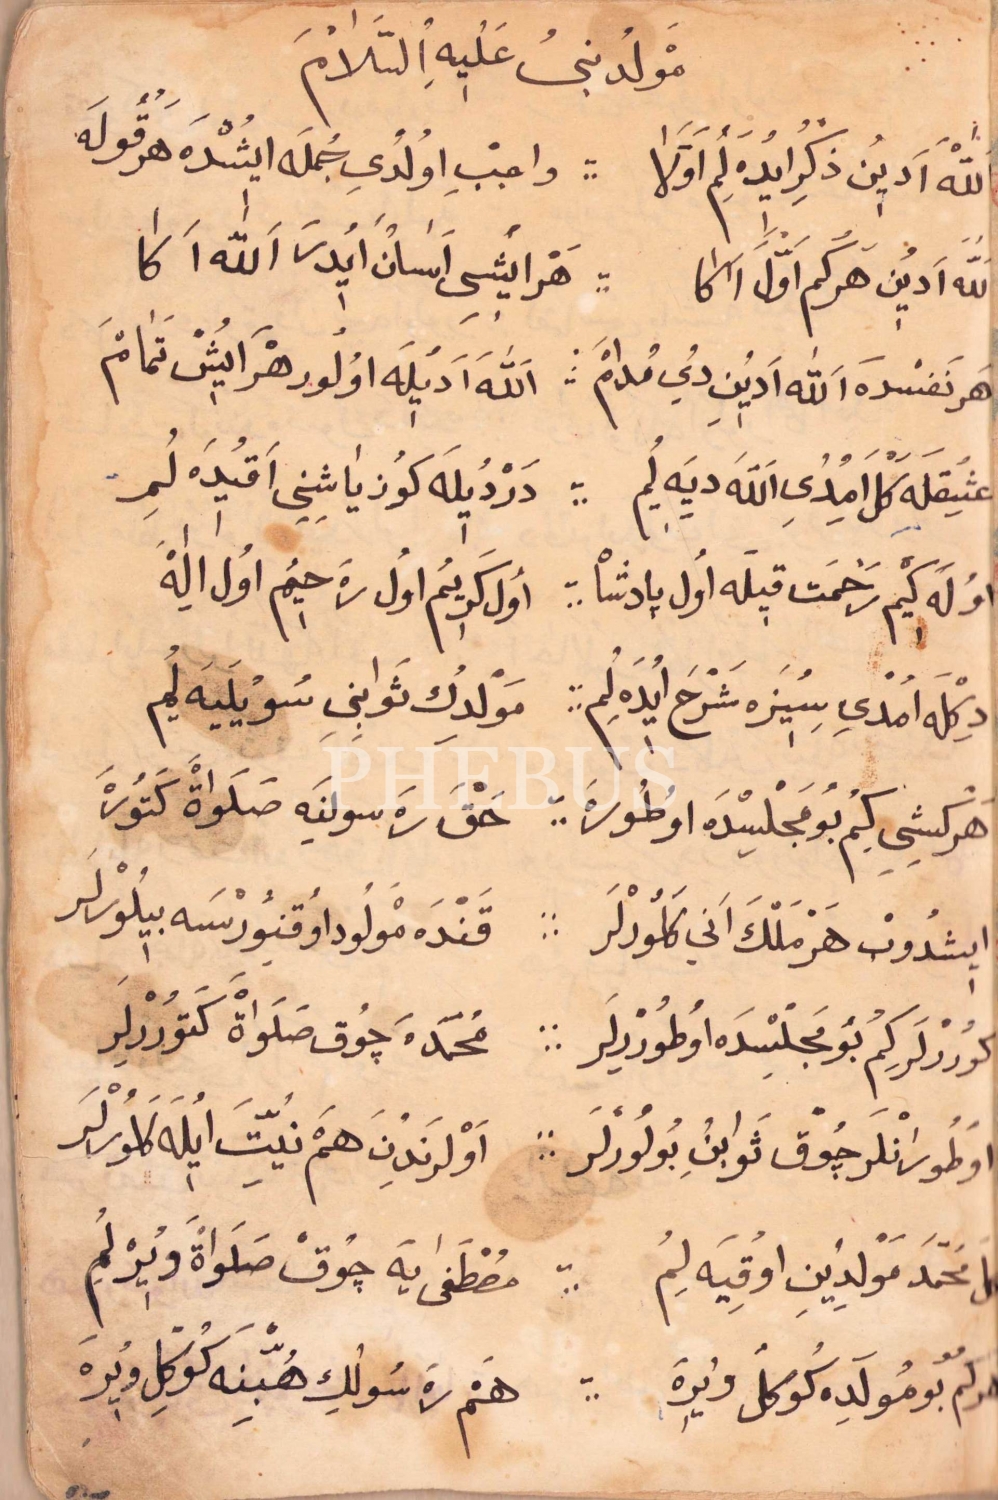 مَوْلُدُ نبىُ عَلَيْهِ اُلسَّلَامَ
اَللّٰهْ اَدِينُ ذِكْرِ ايُدَه لُمِ اَوَّلَا ∴ واجِبْ اوُلْدُىِ جُملَه ايشْدَه هَرْ قُولَه
اَللَّه اَدِيُنِ هَركِم اَوَّلَ اَ كَا ∴ هَرْ ايشِى اَسَانْ ايُدَرَ اَللّٰه اَ كَا
هَر نَفَسْدَه اَللّٰه اَدِيُنِ دِىُ مُدَامْ ∴ اَللّٰهَ اَدِيُلَه اوُلُور هَرْ ايِشْ تَمَامْ
عشِقِلَه كَلْ اَمِدُىِ اَللّٰه دِيَه لُمِ ∴ دَرْدُ يِلَه كوُز يَاشِنِى اَقِيُدَه لُمِ
اوُلَه كِيْم رَحْمَت قيِلَه اُول پادشَاْ ∴ اُول كَرِيُم اوُل رَحِيُم اوُل اِلَٰهْ
دِكْلَه اُمْدِىِ سِيُزَه شَرْحَ ايُدَه لُمِ ∴ مَوْلِدُكِ ثَوَابِنِى سُويُلَيَه لُمِ
هَر كِشِى كِمُ بُو مَجْلِسْدَه اوطُورَهْ ∴ حَقْ رَسولِنَه صَلَوَاةْ كَتوُرَهْ
ايشدُوبْ هَرْ مَلَكْ اَنِى كَلوُرْلَر ∴ قَنْدَه مَوْلُود اوُقِنوُرْسَه بيِلوُرْلَر
كوُرُرْلَر كِمُ بُو مَجْلِسْدَه اوُطُورُرْلَر ∴ مُحَمَّدَهَ چوُق صَلَوَاةْ كَتوُرُرْلَر
اوُطُورَانْلَر چوُقْ ثَوَابُ بُولوُرْلَر ∴ اَوْلَرنَدْنَ هَمْ نُيَّتَ ايُلَه كَلوُرْلَر
مُحَمَّدَ مَوْلِدِيُنِ اوُقُيَه لُمِ ∴ مُصْطَفَىٰ يَه چُوقْ صَلَوَاةْ وِيُرَه لُمِ
هَر كِمُ بُو مُولَدِه كُوكُلْ وِيُرَهْ ∴ هَم رَسُولُكِ حُبِّنِه كُوكُلِ وِيُرَهْ
PHEBUS